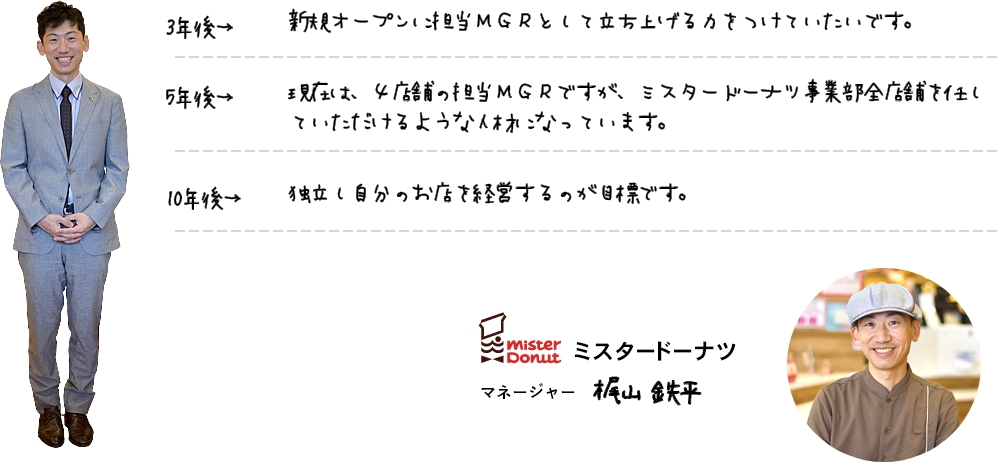 3年後→ 新規オープンに担当MGRとして立ち上げる力をつけていたいです。
5年後→ 現在は、4店舗の担当MGRですが、ミスタードーナツ事業部全店舗を任し
ていただけるような人材になっています。
10年後→ 独立し自分のお店を経営するのが目標です。
mister
Donut
ミスタードーナツ
マネージャー 梶山 鉄平